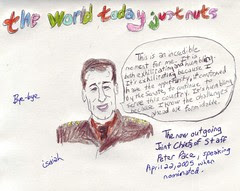 the World today just nuts
This is an incredible
moment for me. It is
both exhilarating and humbling.
It's exhilarating because I
have the opportunity, if confirmed
by the Senate, to continue to
serve this country. It's humbling
because I know the challenges
ahead are formidable.
Bye-bye
isaiah
The now outgoing
Joint Chiefs of Staff
Peter Pace, speaking
April 22, 2005 when
nominated.